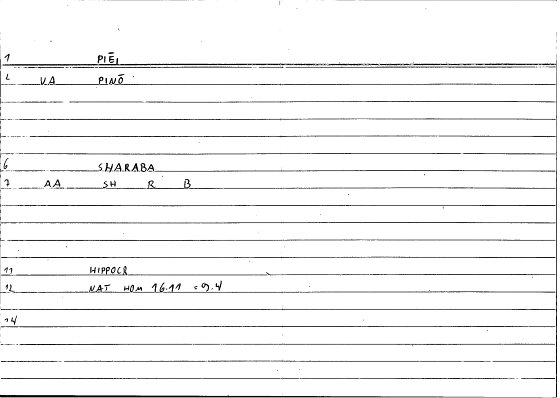 1 PIĒI
2 VA PINŌ
6 SHARABA
7 AA SH R B
11 HIPPOCR
12 NAT HOM 16.11 = 9.4
14